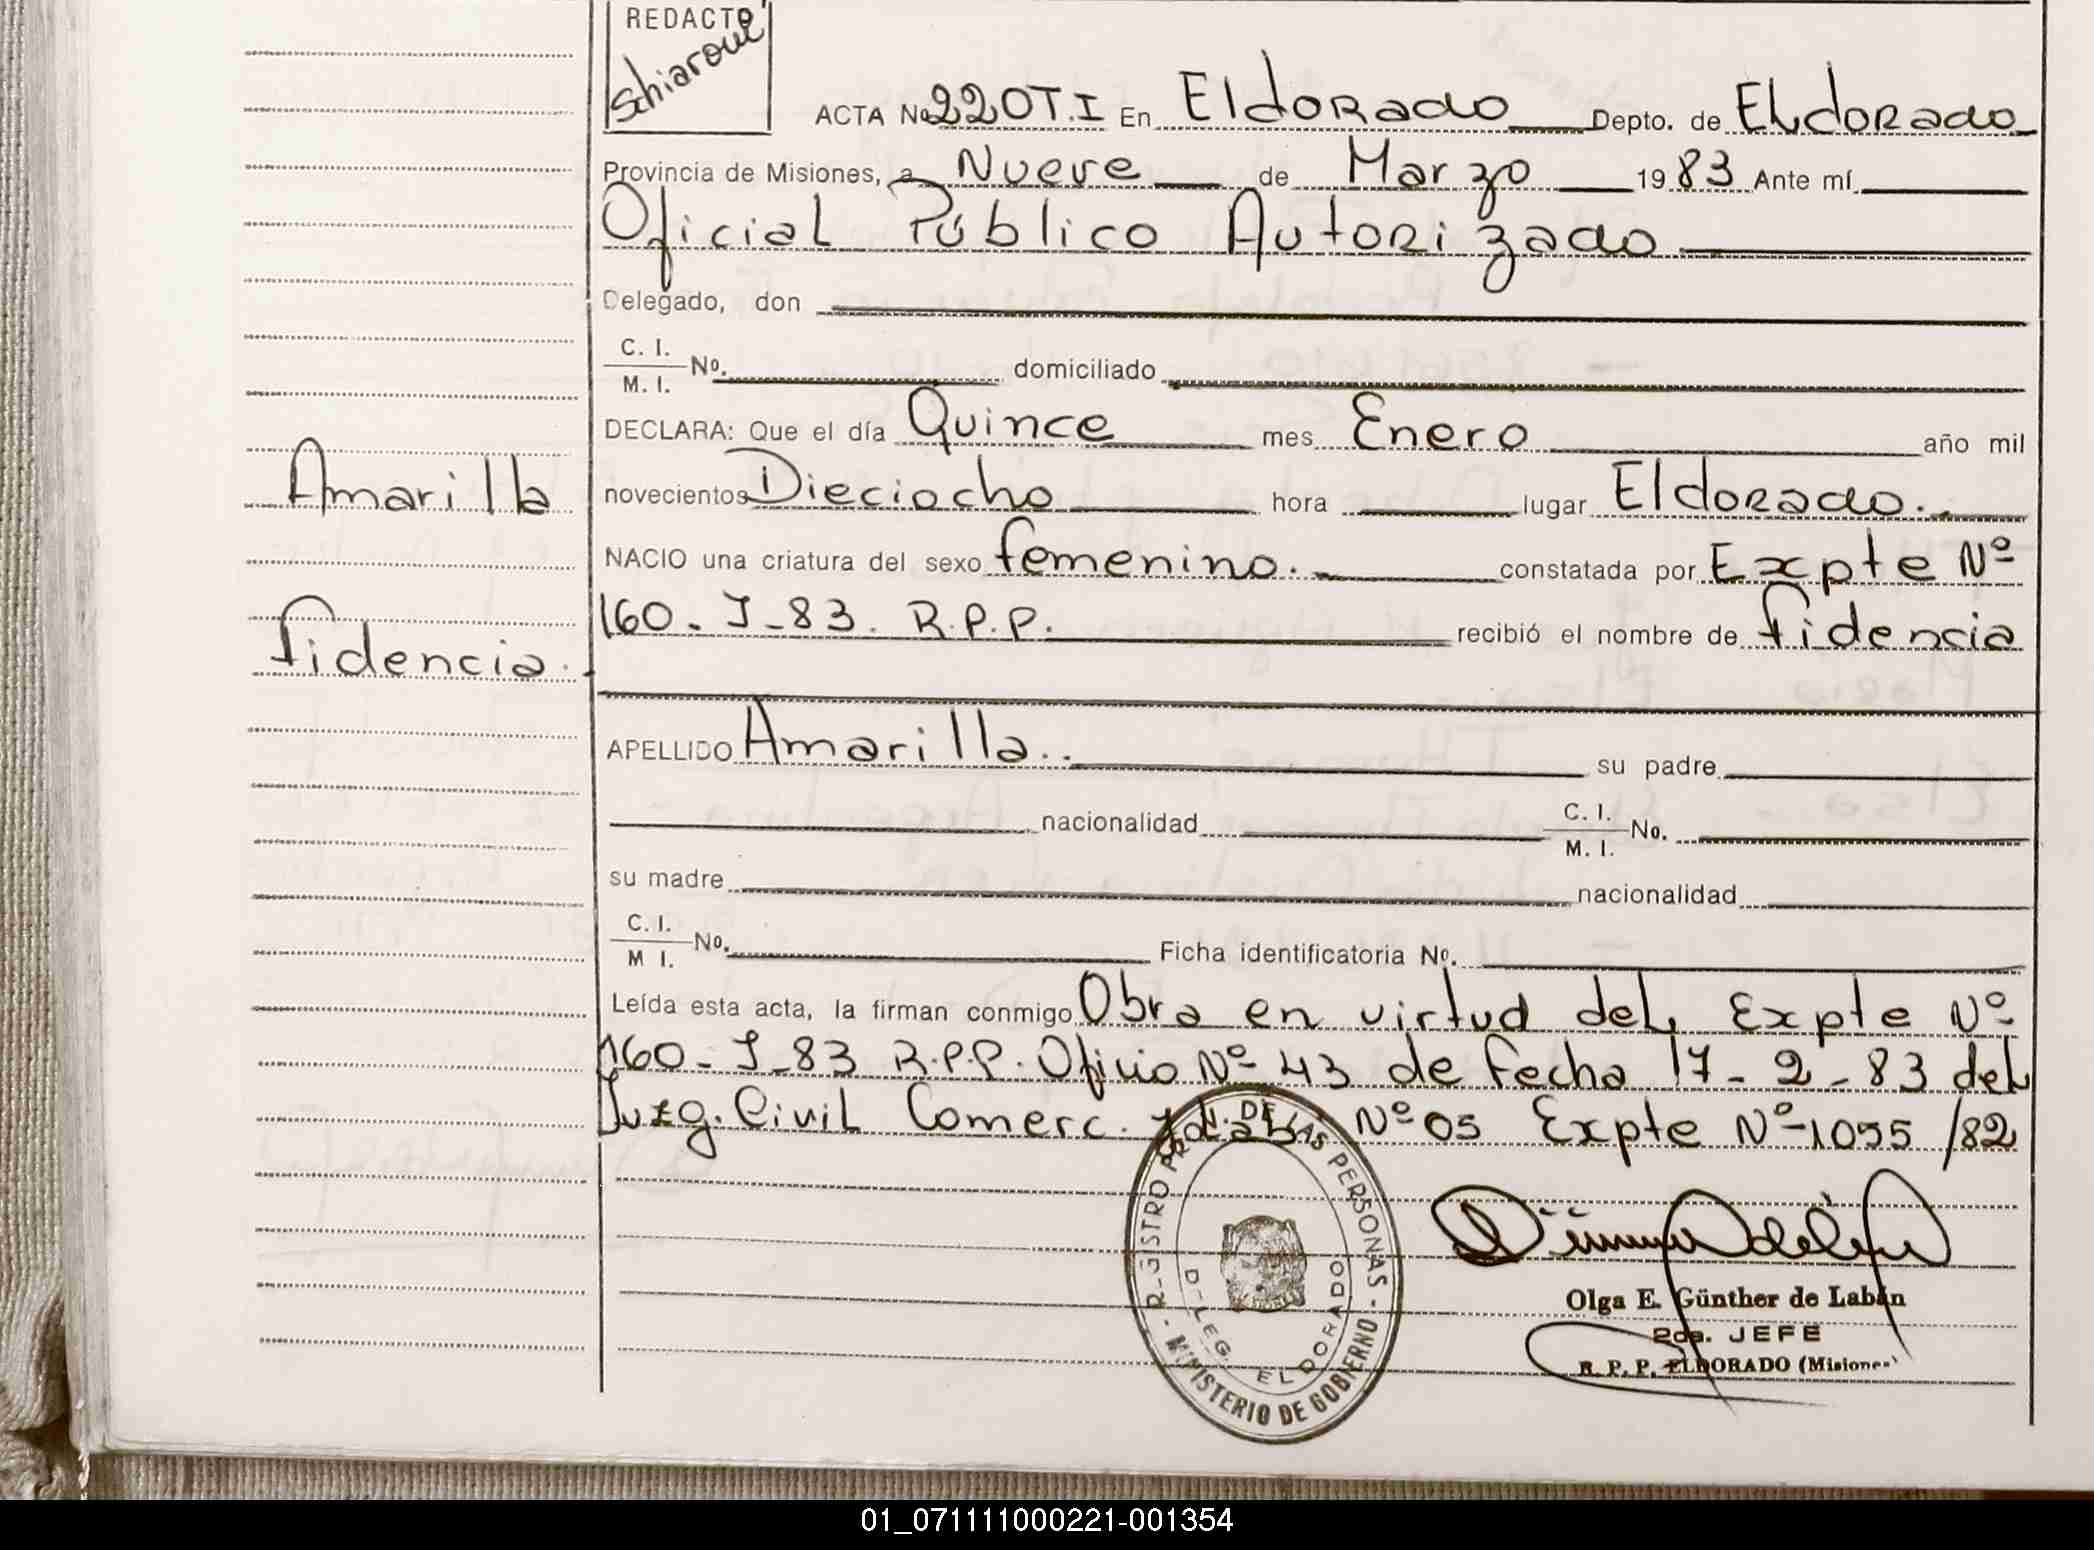 REDACTO
Schiaroul
ACTA No 220 T.I En Eldorado Depto. de Eldorado
Provincia de Misiones, a Nueve de Marzo 1983 Ante mí
Oficial Público Autorizado
Delegado, don
C. I.
M. I. No. domiciliado
DECLARA: Que el día Quince mes Enero año mil
Amarilla
novecientos Dieciocho hora lugar Eldorado.
NACIO una criatura del sexo femenino. constatada por Expte Nº
160-I-83. R.P.P. recibió el nombre de fidencia
fidencia.
APELLIDO Amarilla.. su padre
nacionalidad C. I.
M. I. No.
su madre nacionalidad
C. I.
M I. No. Ficha identificatoria No.
Leída esta acta, la firman conmigo Obra en virtud del Expte Nº
160-I-83 R.P.P. Oficio Nº 43 de fecha 17-2-83 del
Juzg. Civil Comerc. y Lab. Nº 05 Expte Nº 1055/82
REGISTRO PROV. DE LAS PERSONAS - MINISTERIO DE GOBIERNO -
DELEG. ELDORADO
Olga E. Günther de Labán
2da. JEFE
R. P. P. ELDORADO (Misiones)
01_071111000221-001354